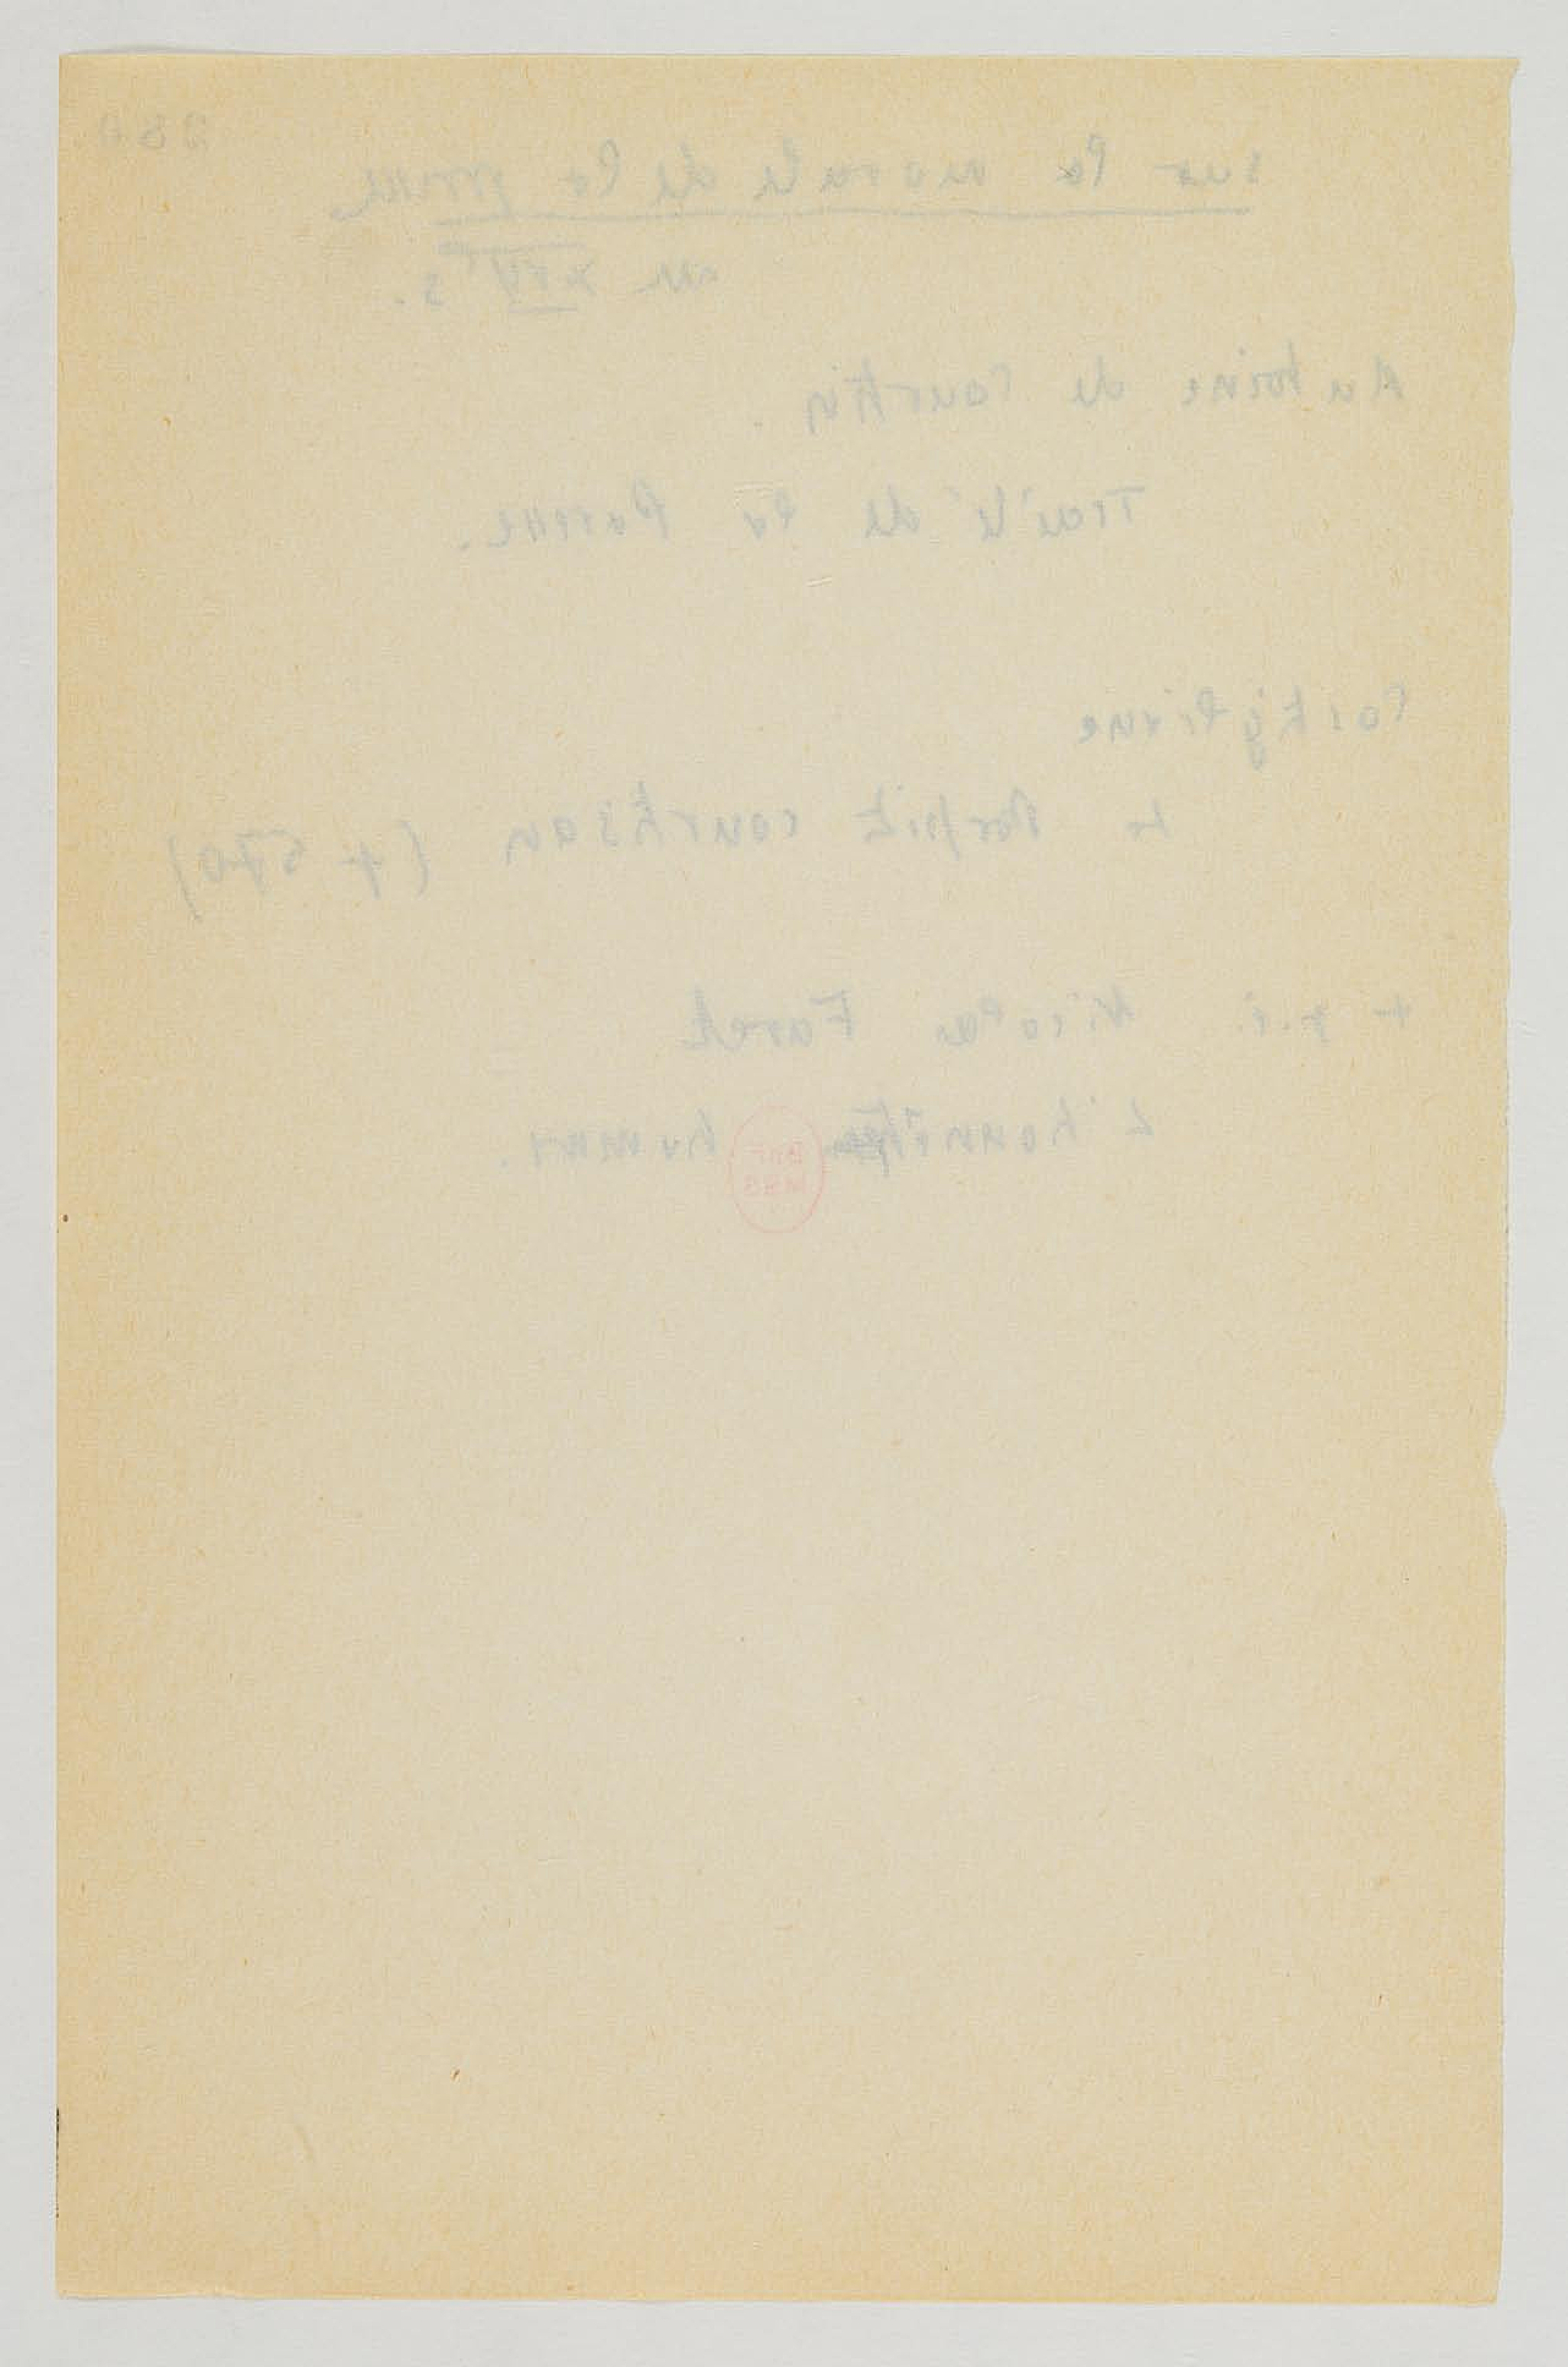 sur la morale de la
au XVIIe s.
Antoine de Courtin.
Traité de la Paresse.
Castiglione
Le Parfait courtisan (+ 570)
+ Nicolas Faret
L'honnête
BnF
MSS